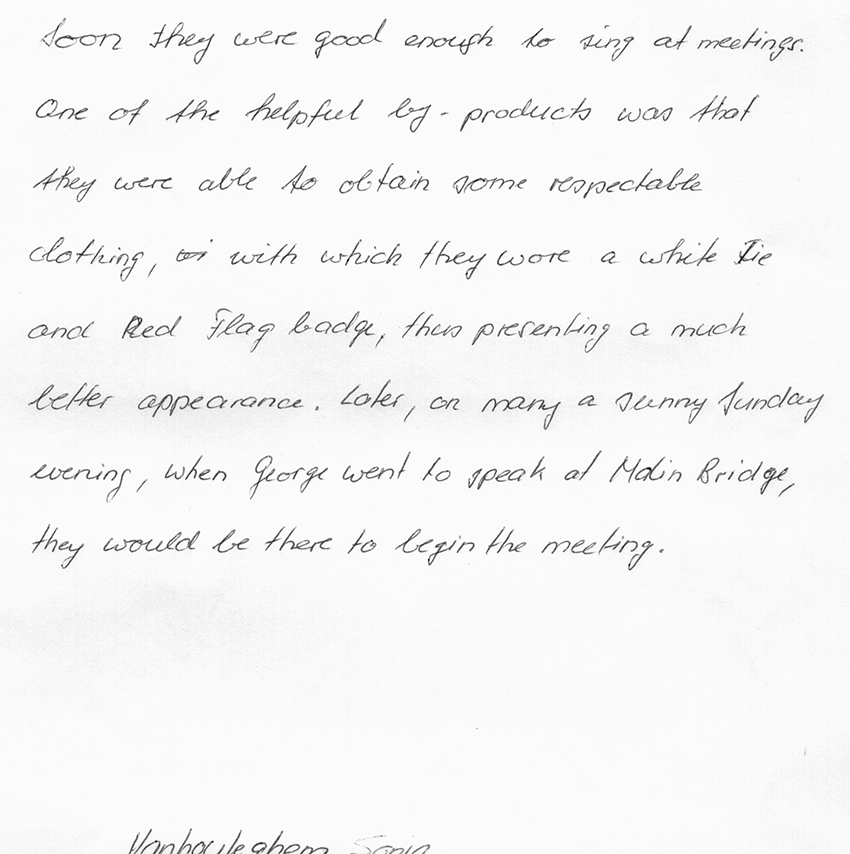 Soon they were good enough to sing at meetings.
One of the helpful by-products was that
they were able to obtain some respectable
clothing, with which they wore a white Tie
and Red Flag badge, thus presenting a much
better appearance. Later, on many a sunny Sunday
evening, when George went to speak at Malin Bridge,
they would be there to begin the meeting.
Sonia